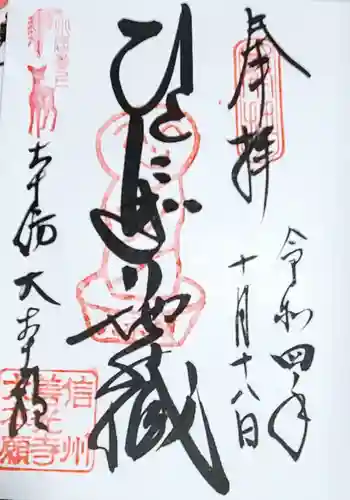 奉拝
令和四年
十月十八日
ひとにぎり地蔵
大本願
信州
善光寺
大本願